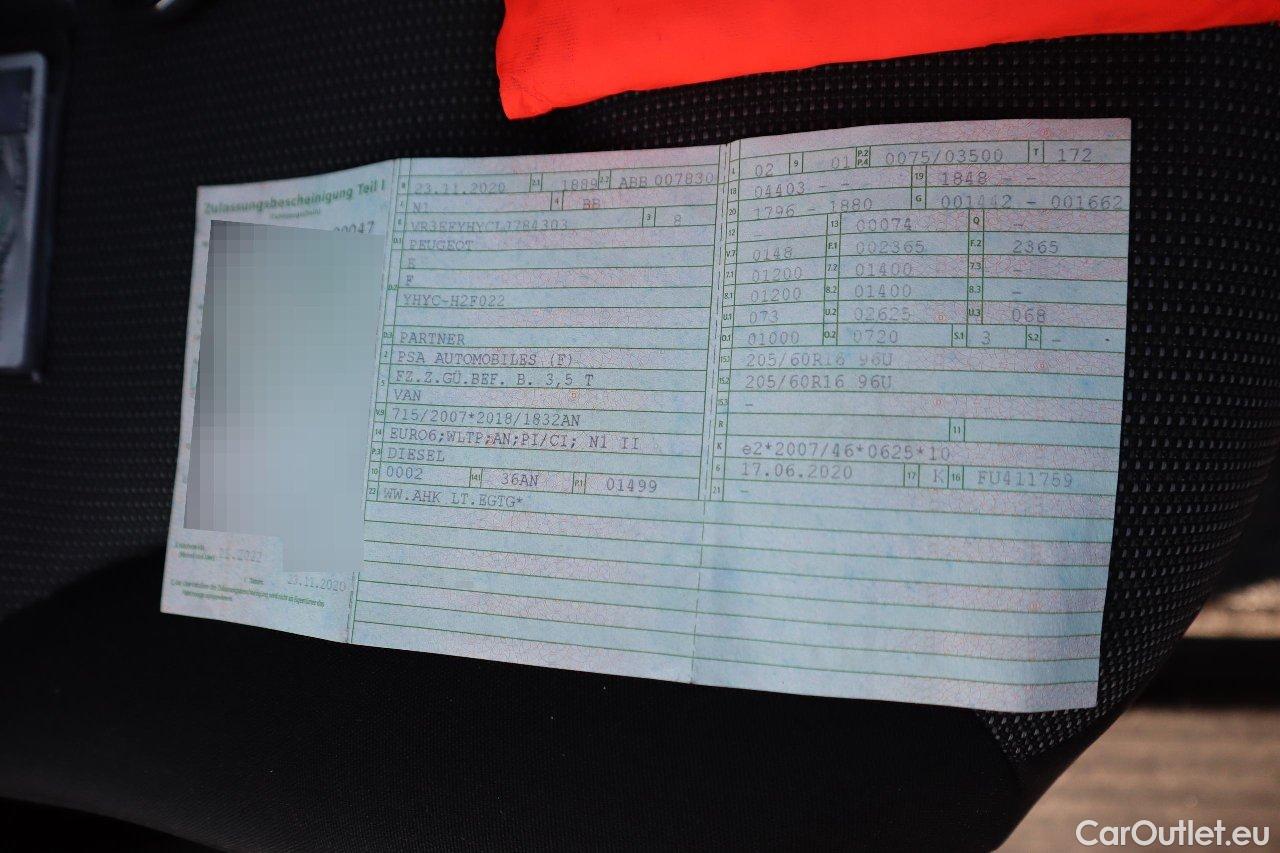 Zulassungsbescheinigung Teil I
00047
23.11.2020
B 23.11.2020 2.1 1889 2.2 ABB 007830
J N1 4 BB
E VR3EFYHYCLJ784303 3 8
D.1 PEUGEOT
E
D.2 F
YHYC-H2F022
D.3 PARTNER
2 PSA AUTOMOBILES (F)
5 FZ.Z.GÜ.BEF. B. 3,5 T
VAN
V.9 715/2007*2018/1832AN
14 EURO6;WLTP;AN;PI/CI; N1 II
P.3 DIESEL
10 0002 14.1 36AN P.1 01499
22 WW.AHK LT.EGTG*
L 02 9 01 P.2 P.4 0075/03500 T 172
18 04403 - - 19 1848 - -
20 1796 - 1880 G 001442 - 001662
12 - 13 00074 Q -
V.7 0148 F.1 002365 F.2 2365
7.1 01200 7.2 01400 7.3 -
8.1 01200 8.2 01400 8.3 -
U.1 073 U.2 02625 U.3 068
O.1 01000 O.2 0720 S.1 3 S.2 -
15.1 205/60R16 96U
15.2 205/60R16 96U
15.3 -
R 11
K e2*2007/46*0625*10
6 17.06.2020 17 K 16 FU411759
21 -
CarOutlet.eu